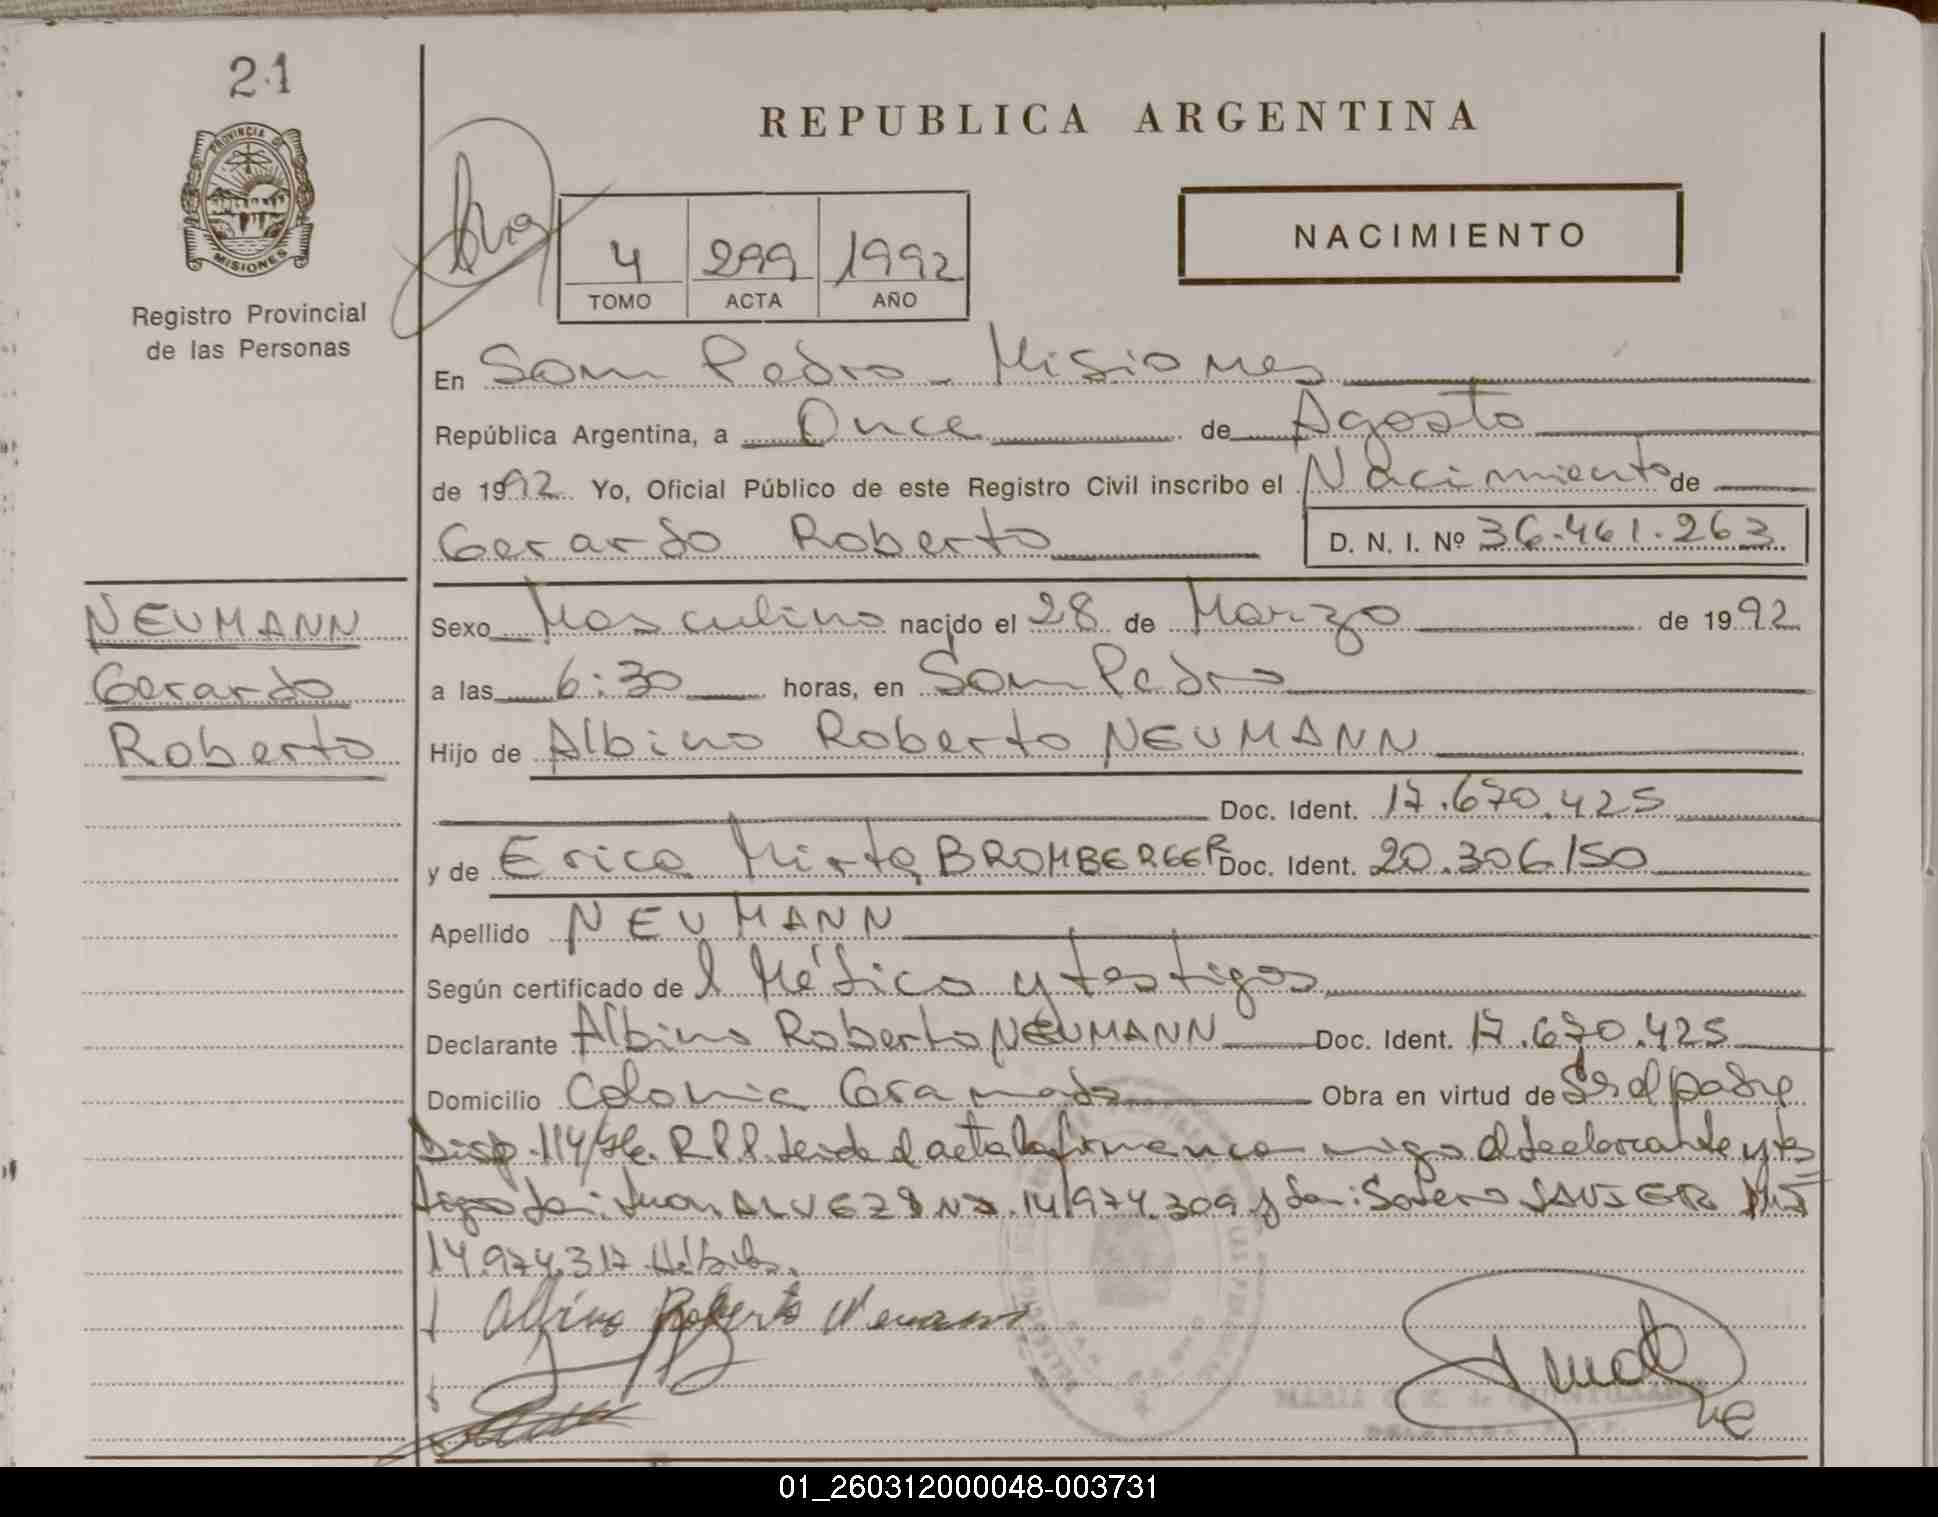 21
PROVINCIA DE
MISIONES
Registro Provincial
de las Personas
REPUBLICA ARGENTINA
NACIMIENTO
4 299 1992
TOMO ACTA AÑO
En San Pedro - Misiones
República Argentina, a Once de Agosto
de 1992 Yo, Oficial Público de este Registro Civil inscribo el Nacimiento de
Gerardo Roberto D. N. I. Nº 36.461.263
NEUMANN
Gerardo
Roberto
Sexo Masculino nacido el 28 de Marzo de 1992
a las 6:30 horas, en San Pedro
Hijo de Albino Roberto NEUMANN
Doc. Ident. 17.670.425
y de Erica Mirta BROMBERGER Doc. Ident. 20.306.150
Apellido NEUMANN
Según certificado del Médico y testigos
Declarante Albino Roberto NEUMANN Doc. Ident. 17.670.425
Domicilio Colonia Gramado Obra en virtud de Ser el padre
Disp. 114/ R.P.P. Leída el acta la firman conmigo el declarante y tes
tigos Juan ALVEZ DNI. 14.974.309 y Sotero DNI
14.974.317 Hábiles.
Albino Roberto Neumann
01_260312000048-003731